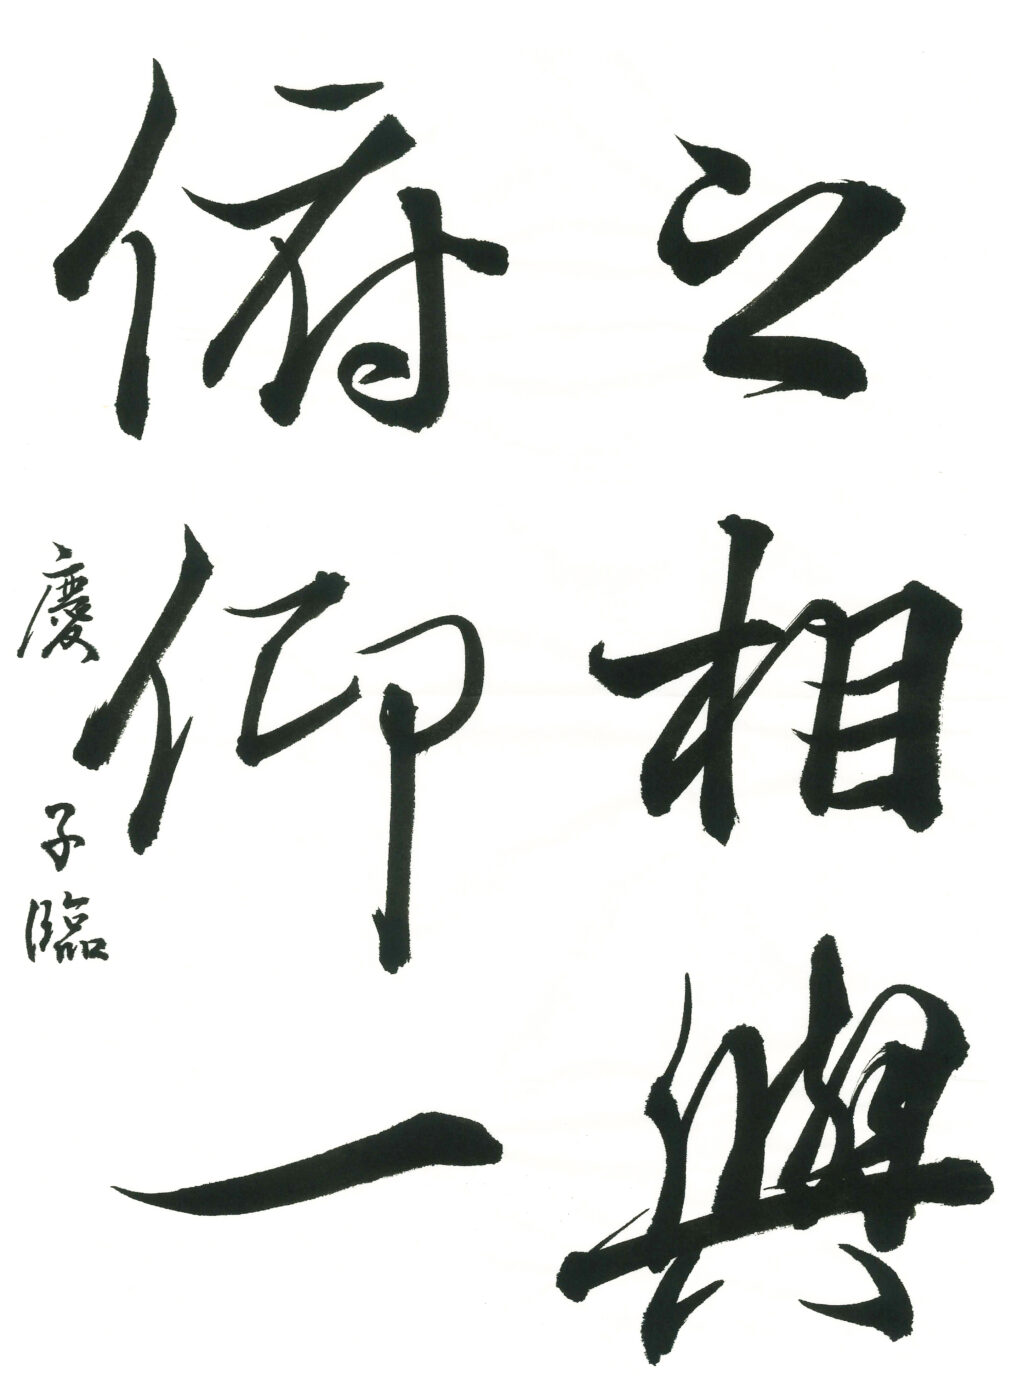 之相與
俯仰一
慶子臨